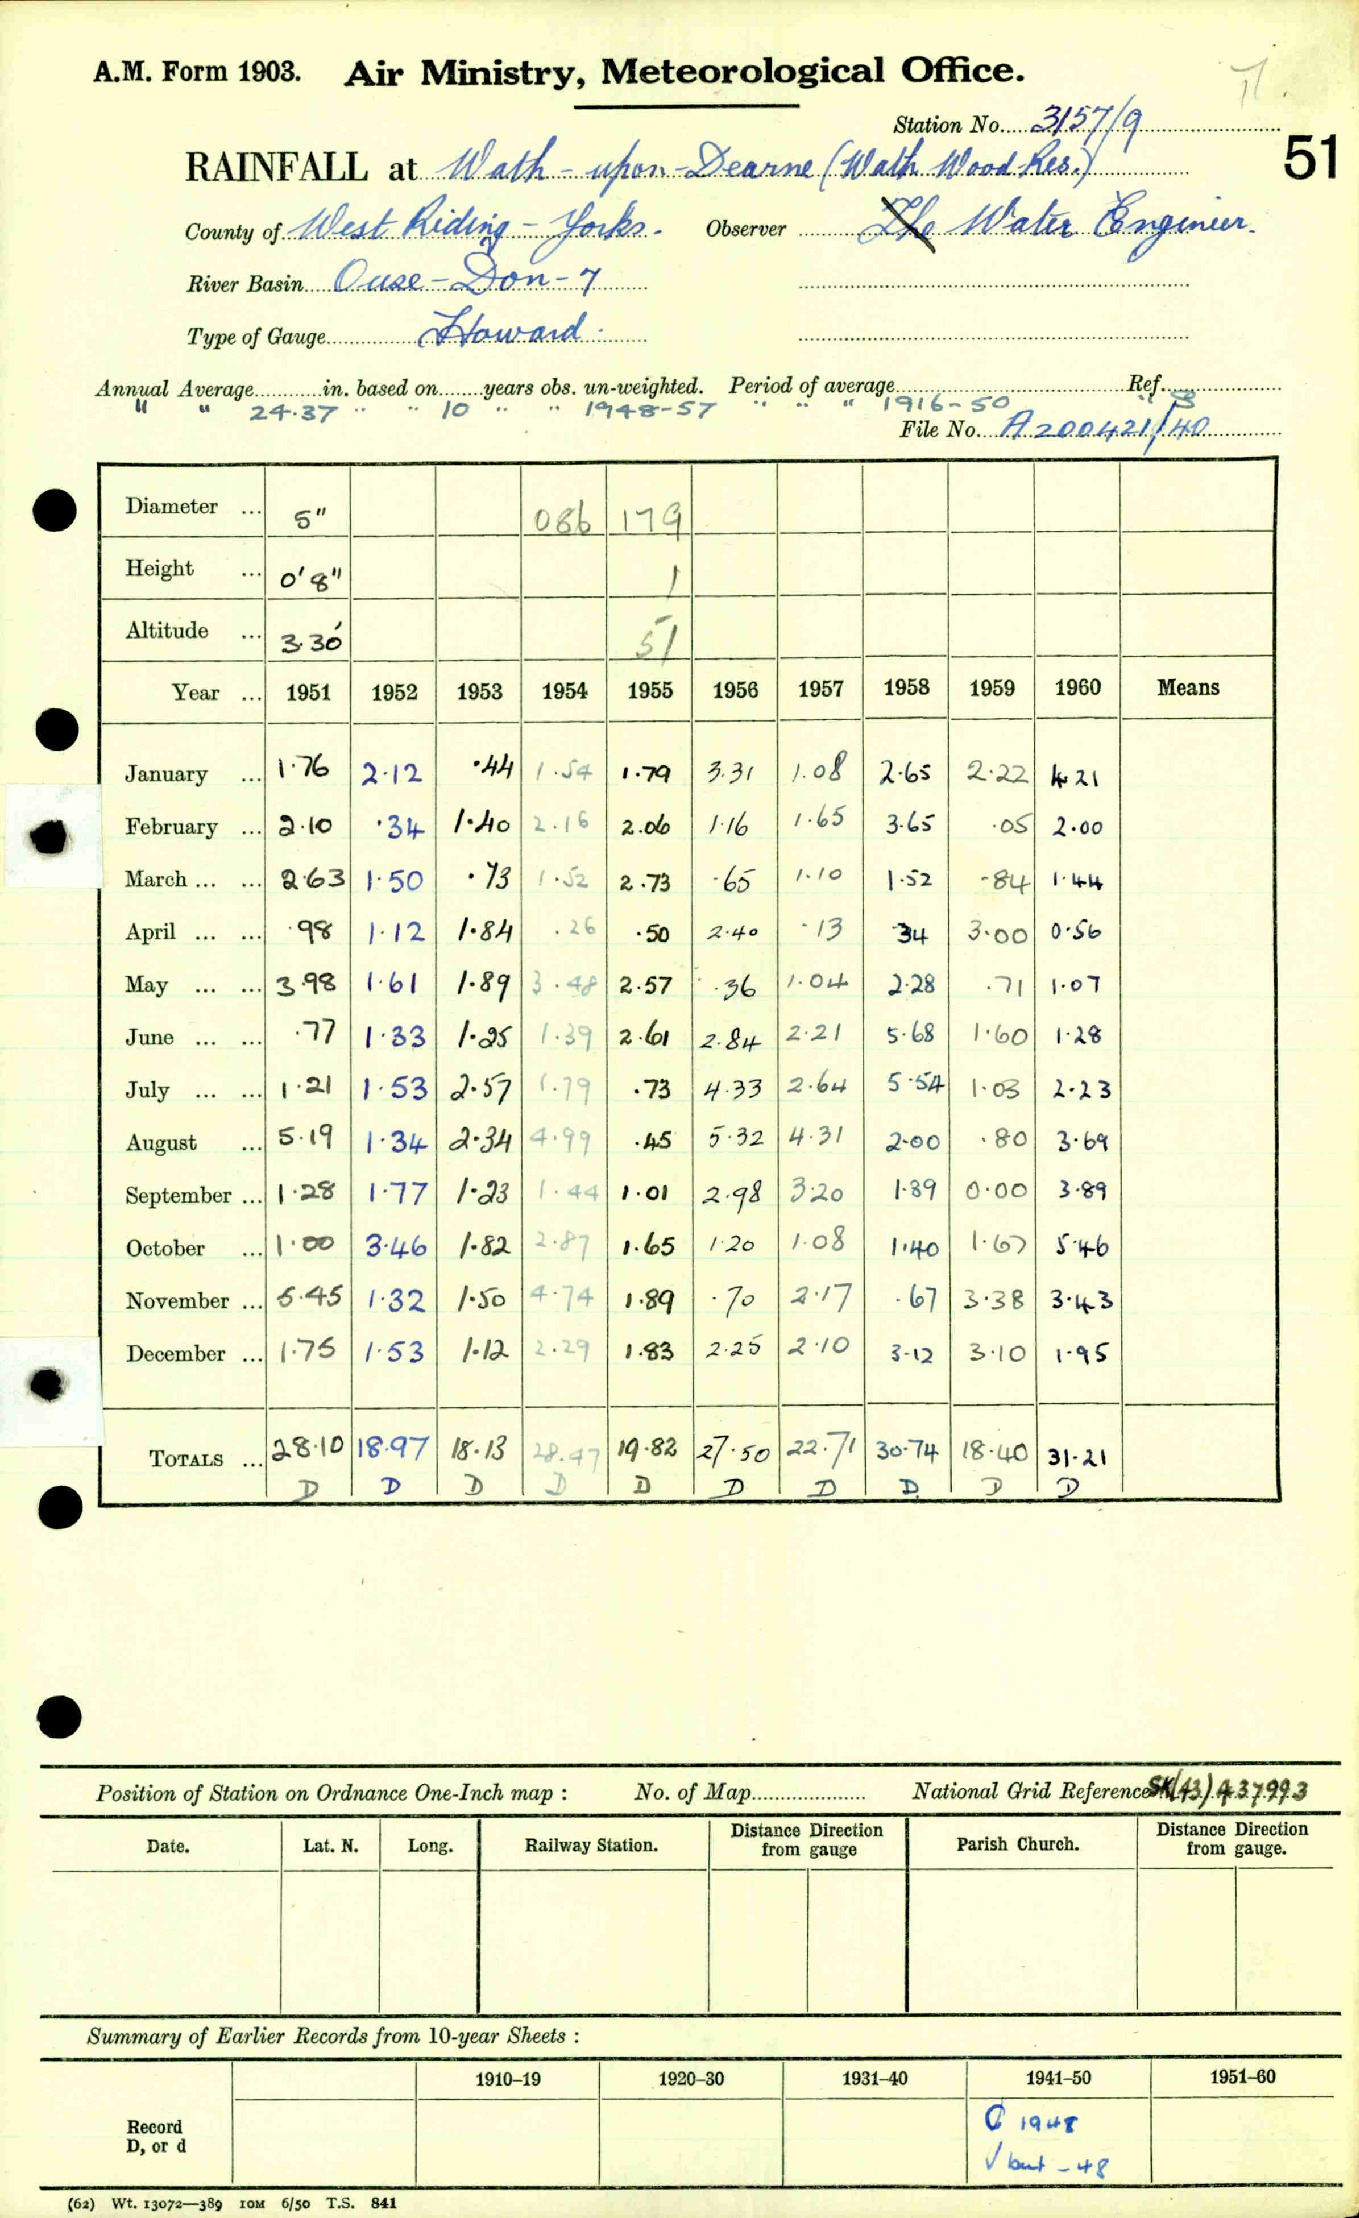 A.M. Form 1903. Air Ministry, Meteorological Office.
Station No. 3157/9
51
RAINFALL at Wath-upon-Dearne (Wath Wood Res.)
County of West Riding - Yorks. Observer The Water Engineer.
River Basin Ouse-Don-7
Type of Gauge Howard.
Annual Average ............ in. based on ........ years obs. un-weighted. Period of average ............ Ref. ............
" " 24.37 " " 10 " " 1948-57 " " " 1916-50 " S
File No. A200421/40
Diameter ... 5" 086 179
Height ... 0'8" 1
Altitude ... 330' 51
Year ... 1951 1952 1953 1954 1955 1956 1957 1958 1959 1960 Means
January ... 1.76 2.12 .44 1.54 1.79 3.31 1.08 2.65 2.22 4.21
February ... 2.10 .34 1.40 2.16 2.06 1.16 1.65 3.65 .05 2.00
March ... ... 2.63 1.50 .73 1.52 2.73 .65 1.10 1.52 .84 1.44
April ... ... .98 1.12 1.84 .26 .50 2.40 .13 .34 3.00 0.56
May ... ... 3.98 1.61 1.89 3.48 2.57 .36 1.04 2.28 .71 1.07
June ... ... .77 1.33 1.25 1.39 2.61 2.84 2.21 5.68 1.60 1.28
July ... ... 1.21 1.53 2.57 1.79 .73 4.33 2.64 5.54 1.03 2.23
August ... 5.19 1.34 2.34 4.99 .45 5.32 4.31 2.00 .80 3.69
September ... 1.28 1.77 1.23 1.44 1.01 2.98 3.20 1.89 0.00 3.89
October ... 1.00 3.46 1.82 2.87 1.65 1.20 1.08 1.40 1.67 5.46
November ... 5.45 1.32 1.50 4.74 1.89 .70 2.17 .67 3.38 3.43
December ... 1.75 1.53 1.12 2.29 1.83 2.25 2.10 3.12 3.10 1.95
TOTALS ... 28.10 18.97 18.13 28.47 19.82 27.50 22.71 30.74 18.40 31.21
D D D D D D D D D D
Position of Station on Ordnance One-Inch map : No. of Map ............ National Grid Reference SK(43) 437993
Date. Lat. N. Long. Railway Station. Distance Direction from gauge Parish Church. Distance Direction from gauge.
Summary of Earlier Records from 10-year Sheets :
1910–19 1920–30 1931–40 1941–50 1951–60
Record D, or d
1948
√ but - 48
(62) Wt. 13072—389 10M 6/50 T.S. 841